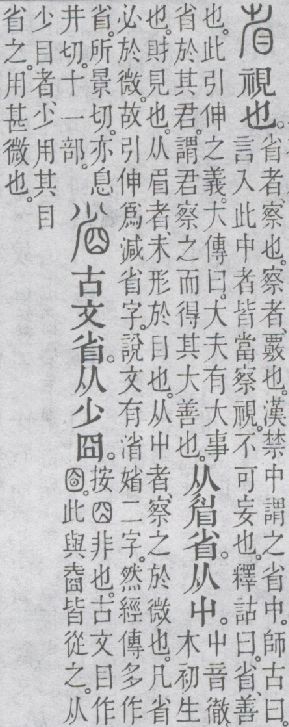 省視也。
省者、察也。察者、覈也。漢禁中謂之省中。師古曰。
言入此中者皆當察視。不可妄也。釋詁曰。省、善
也。此引伸之義。大傳曰。大夫有大事
省於其君。謂君察之而得其大善也。
从眉省。从屮。
屮音徹
木初生
也。財見也。从眉者、未形於目也。从屮者、察之於微也。凡省
必於微。故引伸爲減省字。說文有渻媘二字。然經傳多作
省。所景切。亦息
井切。十一部。
古文省。从少囧。
按囧非也。古文目作
此與皆從之。从
少目者、少用其目
省之。用甚微也。